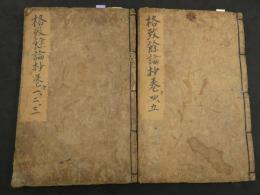 格致餘論抄巻一二三
格致餘論抄巻四五